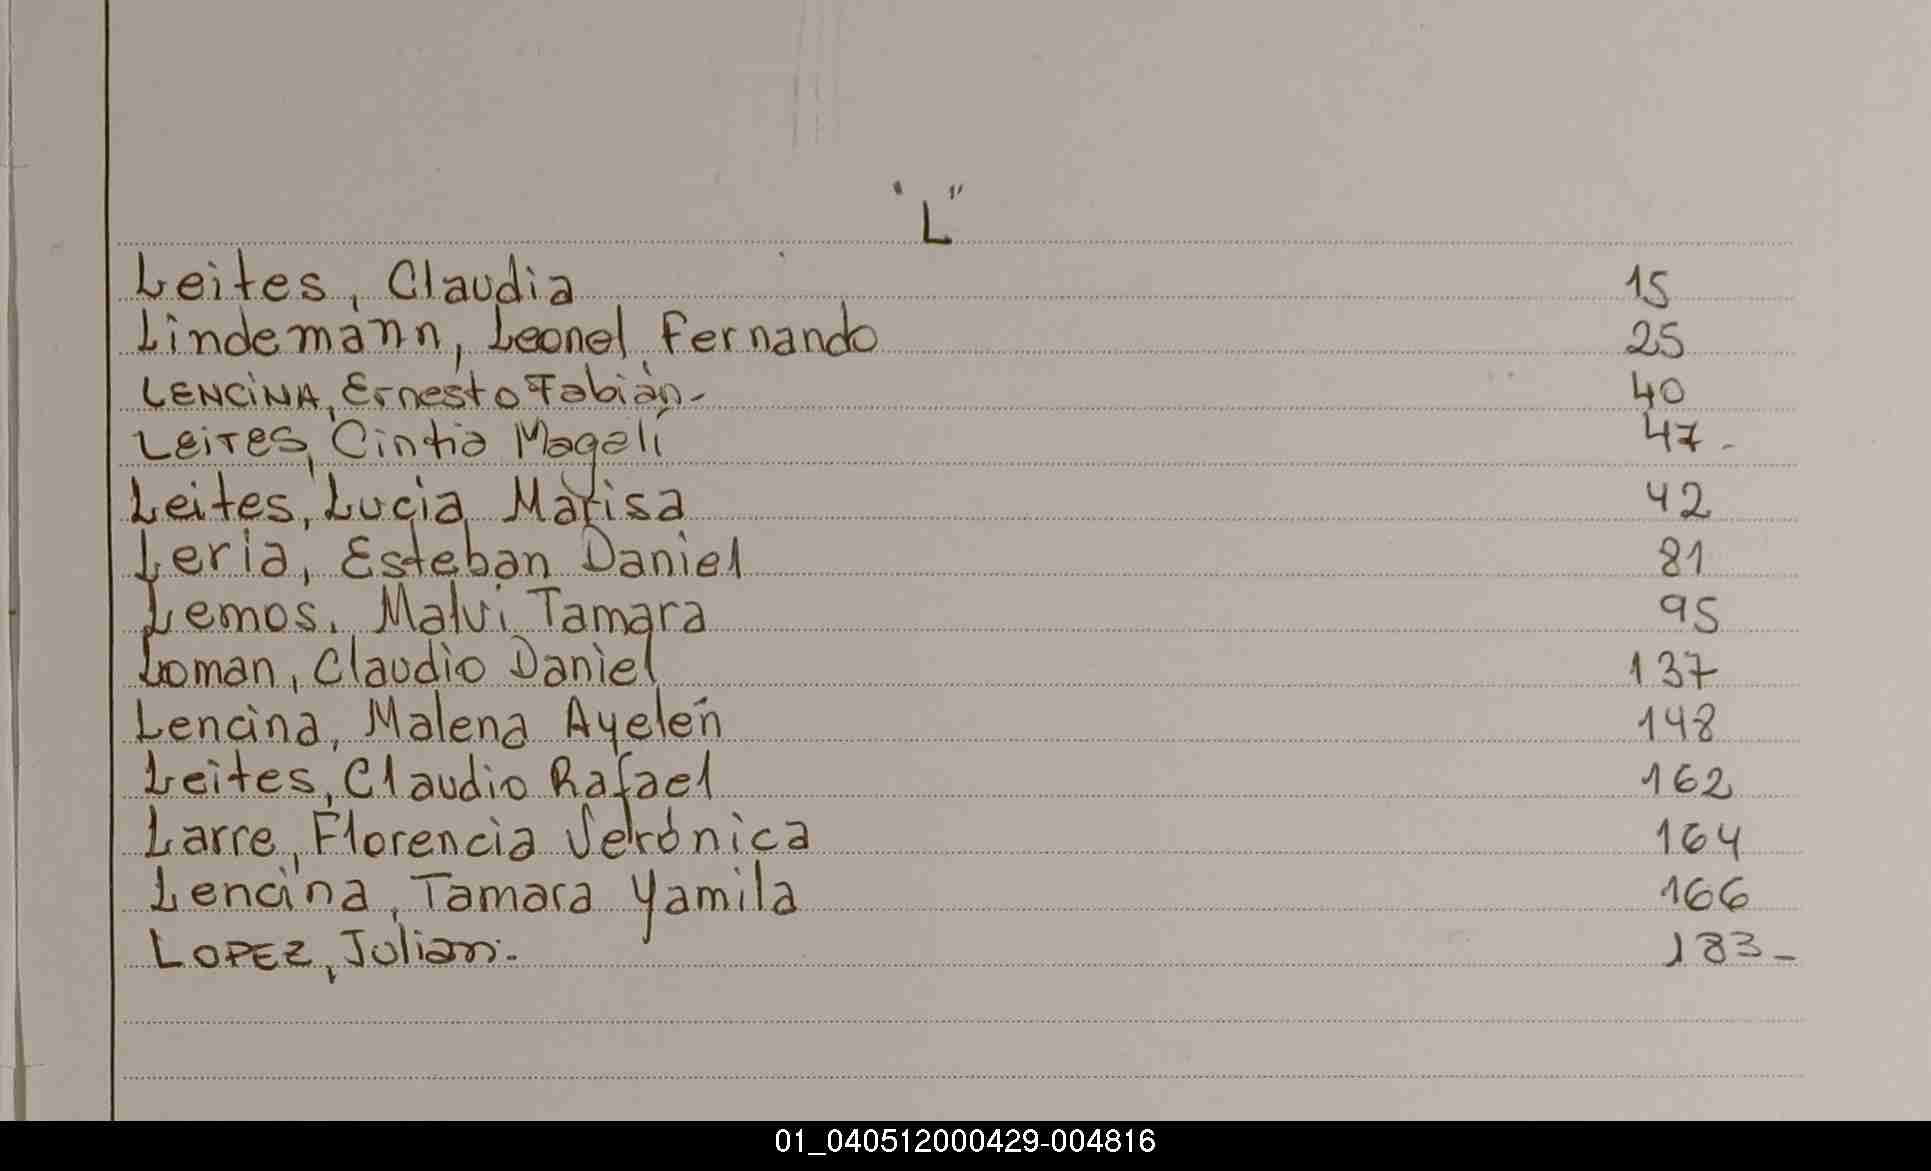 "L"
Leites, Claudia 15
Lindemann, Leonel Fernando 25
LENCINA, Ernesto Fabián.- 40
LEITES, Cintia Magalí 47-
Leites, Lucia Marisa 42
Leria, Esteban Daniel 81
Lemos, Malvi Tamara 95
Loman, Claudio Daniel 137
Lencina, Malena Ayelén 148
Leites, Claudio Rafael 162
Larre, Florencia Verónica 164
Lencina, Tamara Yamila 166
LOPEZ, Julian.- 183-
01_040512000429-004816